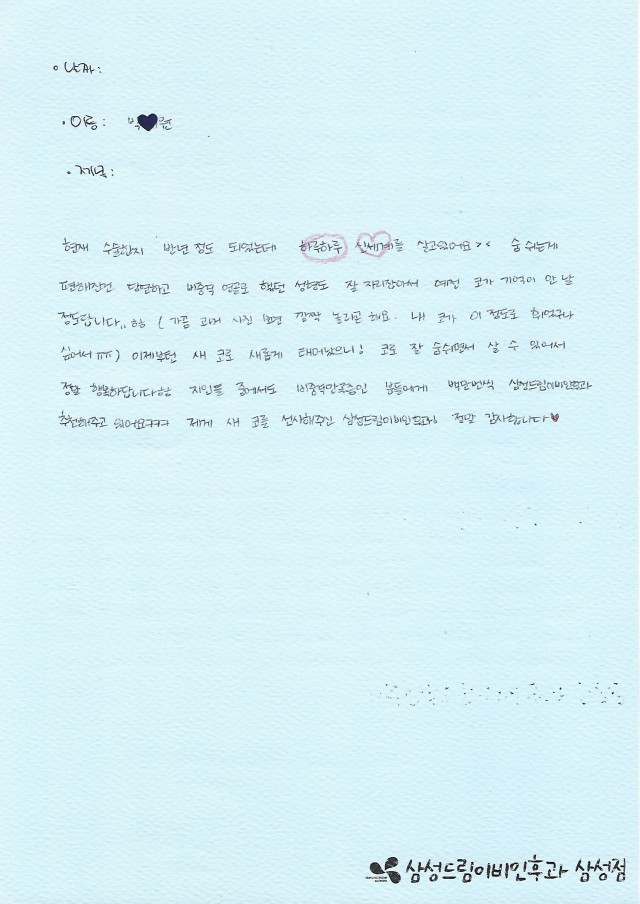 • 날짜:
• 이름: 박 윤
• 제목:
현재 수술한지 반년 정도 되었는데 하루하루 신세계를 살고있어요>< 숨 쉬는게
편해진건 당연하고 비중격 연골로 했던 성형도 잘 자리잡아서 예전 코가 기억이 안 날
정도랍니다,, ㅎㅎ ( 가끔 과거 사진 보면 깜짝 놀라곤 해요. 내 코가 이 정도로 휘었구나
싶어서 ㅠㅠ) 이제부턴 새 코로 새롭게 태어났으니! 코로 잘 숨쉬면서 살 수 있어서
정말 행복하답니다ㅎㅎ 지인들 중에서도 비중격만곡증인 분들에게 백만번씩 삼성드림이비인후과
추천해주고 있어요ㅋㅋㅋ 제게 새 코를 선사해주신 삼성드림이비인후과! 정말 감사합니다♥
삼성드림이비인후과 삼성점